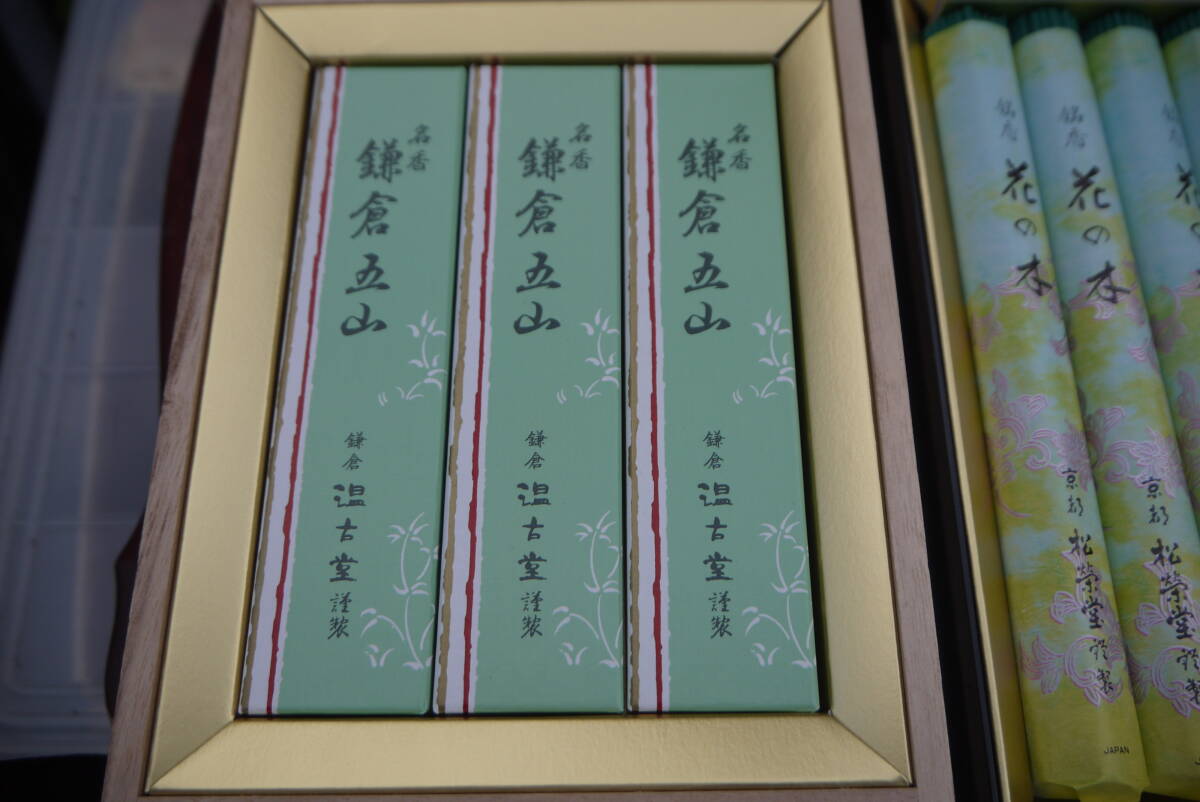 名香
鎌倉五山
鎌倉
温古堂
謹製
名香
鎌倉五山
鎌倉
温古堂
謹製
名香
鎌倉五山
鎌倉
温古堂
謹製
銘香
花の木
JAPAN
銘香
花の木
京都
松榮堂
謹製
銘香
花の木
京都
松榮堂
謹製